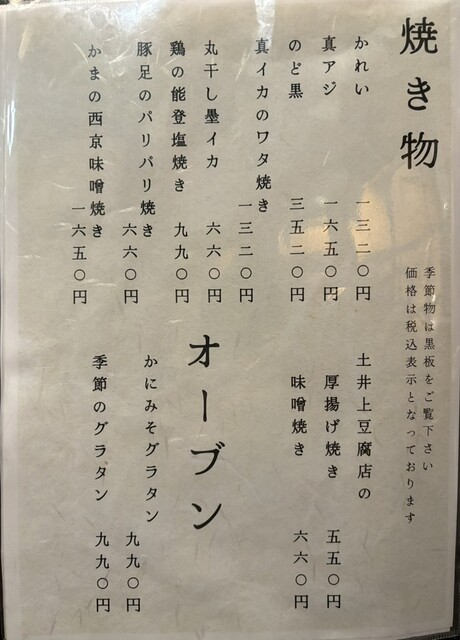 焼き物
季節物は黒板をご覧下さい
価格は税込表示となっております
かれい 一三二〇円
真アジ 一六五〇円
のど黒 三五二〇円
真イカのワタ焼き 一三二〇円
丸干し墨イカ 六六〇円
鶏の能登塩焼き 九九〇円
豚足のパリパリ焼き 六六〇円
かまの西京味噌焼き 一六五〇円
土井上豆腐店の
厚揚げ焼き 五五〇円
味噌焼き 六六〇円
オーブン
かにみそグラタン 九九〇円
季節のグラタン 九九〇円